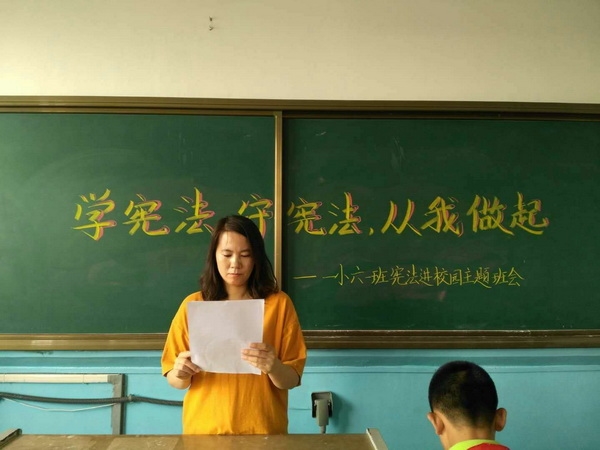 学宪法 守宪法，从我做起
——小六一班宪法进校园主题班会